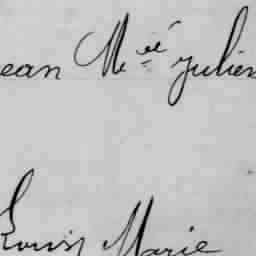 ean M.ée julien
Louis Marie